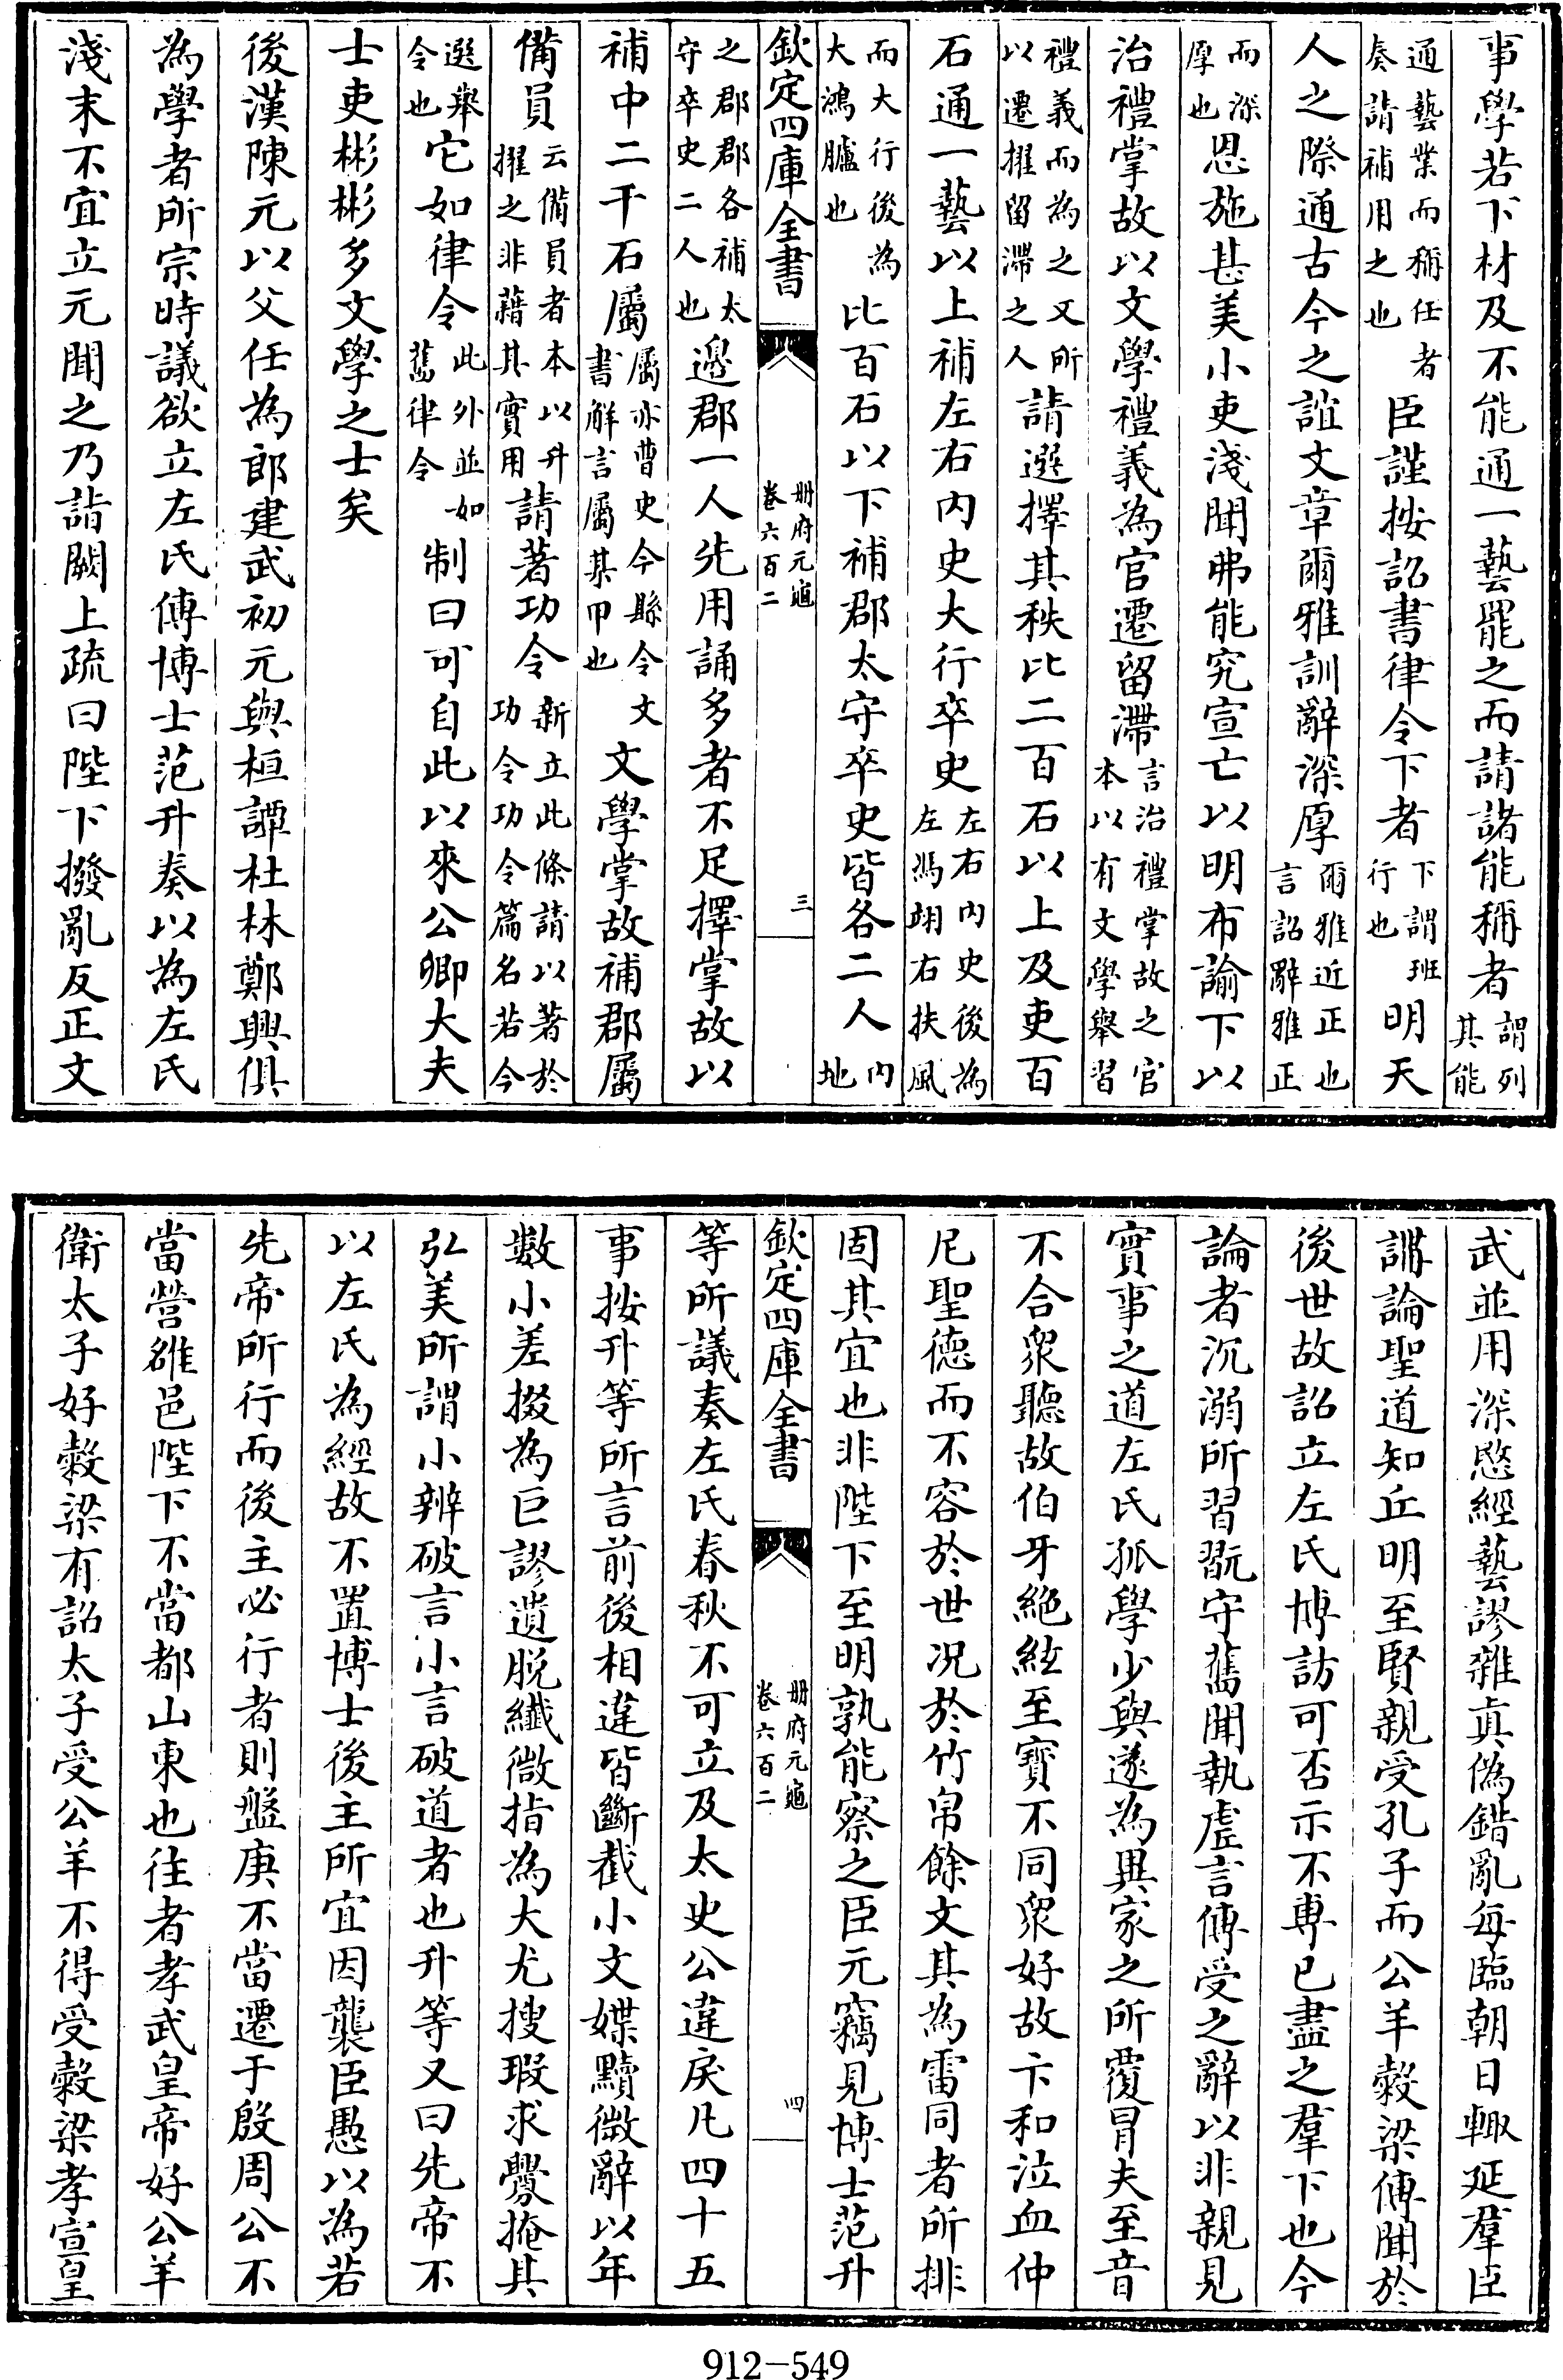 事學若下材及不能通一藝罷之而請諸能稱者謂列其能
通藝業而稱任者奏請補用之也臣謹按詔書律令下者下謂班行也明天
人之際通古今之誼文章爾雅訓辭深厚爾雅近正也言詔辭雅正
而深厚也恩施甚美小吏淺聞弗能究宣亡以明布諭下以
治禮掌故以文學禮義為官遷留滯言治禮掌故之官本以有文學舉習
禮義而為之又所以遷擢留滯之人請選擇其秩比二百石以上及吏百
石通一藝以上補左右內史大行卒史左右內史後為左馮翊右扶風
而大行後為大鴻臚也比百石以下補郡太守卒史皆各二人內地
欽定四庫全書
冊府元龜
卷六百二
三
之郡郡各補太守卒史二人也邊郡一人先用誦多者不足擇掌故以
補中二千石屬屬亦曹史今縣令文書解言屬某甲也文學掌故補郡屬
備員云備員者本以升擢之非藉其實用請著功令新立此條請以著於功令功令篇名若今
選舉令也它如律令此外並如舊律令制曰可自此以來公卿大夫
士吏彬彬多文學之士矣
後漢陳元以父任為郎建武初元與桓譚杜林鄭興俱
為學者所宗時議欲立左氏傳博士范升奏以為左氏
淺末不宜立元聞之乃詣闕上疏曰陛下撥亂反正文
武並用深愍經藝謬雜真偽錯亂每臨朝日輙延羣臣
講論聖道知丘明至賢親受孔子而公羊穀梁傳聞於
後世故詔立左氏博訪可否示不專已盡之羣下也今
論者沉溺所習翫守舊聞執虛言傳受之辭以非親見
實事之道左氏孤學少與遂為異家之所覆冒夫至音
不合衆聽故伯牙絕絃至寶不同衆好故卞和泣血仲
尼聖德而不容於世况於竹帛餘文其為雷同者所排
固其宜也非陛下至明孰能察之臣元竊見博士范升
欽定四庫全書
冊府元龜
卷六百二
四
等所議奏左氏春秋不可立及太史公違戾凡四十五
事按升等所言前後相違皆斷截小文媟黷微辭以年
數小差掇為巨謬遺脫纖微指為大尤搜瑕求釁掩其
弘美所謂小辨破言小言破道者也升等又曰先帝不
以左氏為經故不置博士後主所宜因襲臣愚以為若
先帝所行而後主必行者則盤庚不當遷于殷周公不
當營雒邑陛下不當都山東也往者孝武皇帝好公羊
衛太子好穀梁有詔太子受公羊不得受穀梁孝宣皇
912-549